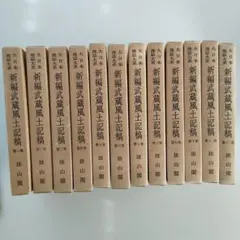 大日本地誌大系
新編武蔵風土記稿
雄山閣
大日本地誌大系
新編武蔵風土記稿
雄山閣
大日本地誌大系
新編武蔵風土記稿
雄山閣
大日本地誌大系
新編武蔵風土記稿
雄山閣
大日本地誌大系
新編武蔵風土記稿
雄山閣
大日本地誌大系
新編武蔵風土記稿
雄山閣
大日本地誌大系
新編武蔵風土記稿
雄山閣
大日本地誌大系
新編武蔵風土記稿
雄山閣
大日本地誌大系
新編武蔵風土記稿
雄山閣
大日本地誌大系
新編武蔵風土記稿
雄山閣
大日本地誌大系
新編武蔵風土記稿
雄山閣
大日本地誌大系
新編武蔵風土記稿
雄山閣